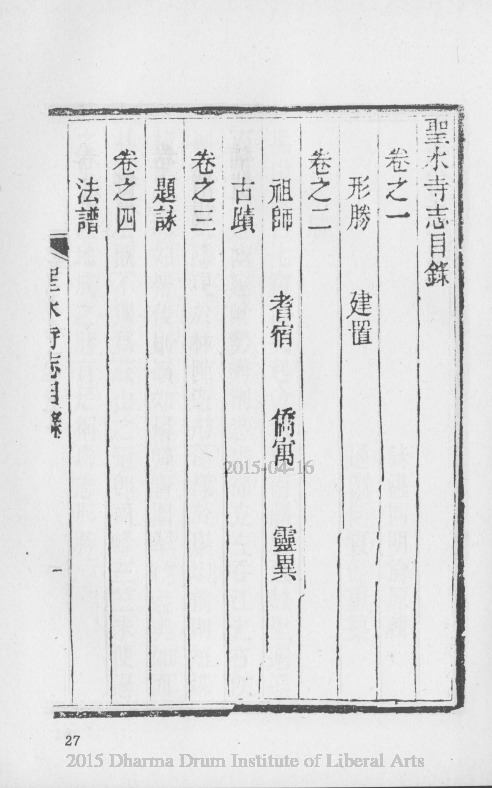 聖水寺志目錄
卷之一
形勝 建置
卷之二
祖師 耆宿 僑寓 靈異
古蹟
卷之三
題詠
卷之四
法譜
聖水寺志目錄 一
2015-04-16
27
2015 Dharma Drum Institute of Liberal Arts